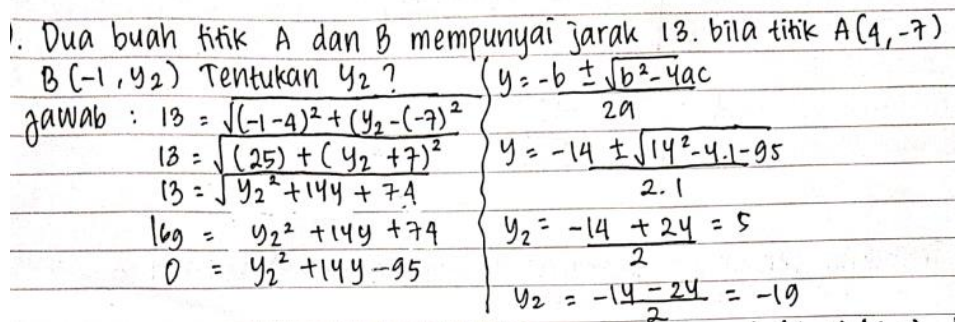 . Dua buah titik A dan B mempunyai jarak 13. bila titik A(4,-7)
B (-1, y₂) Tentukan y₂ ?
Jawab : 13 = √(-1-4)² + (y₂-(-7)²
13 = √(25) + (y₂ +7)²
13 = √y₂² + 14y + 74
169 = y₂² + 14y + 74
0 = y₂² + 14y - 95
y = -b ± √b² - 4ac
2a
y = -14 ± √14² - 4.1-95
2.1
y₂ = -14 + 24 = 5
2
y₂ = -14 - 24 = -19
2